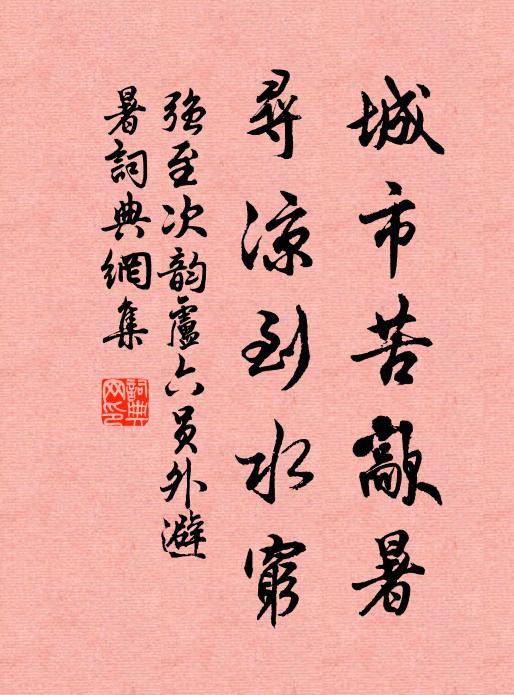 城市苦歊暑
尋涼到水窮
强至次韵盧六員外避
暑詞典網集
詞典
网印